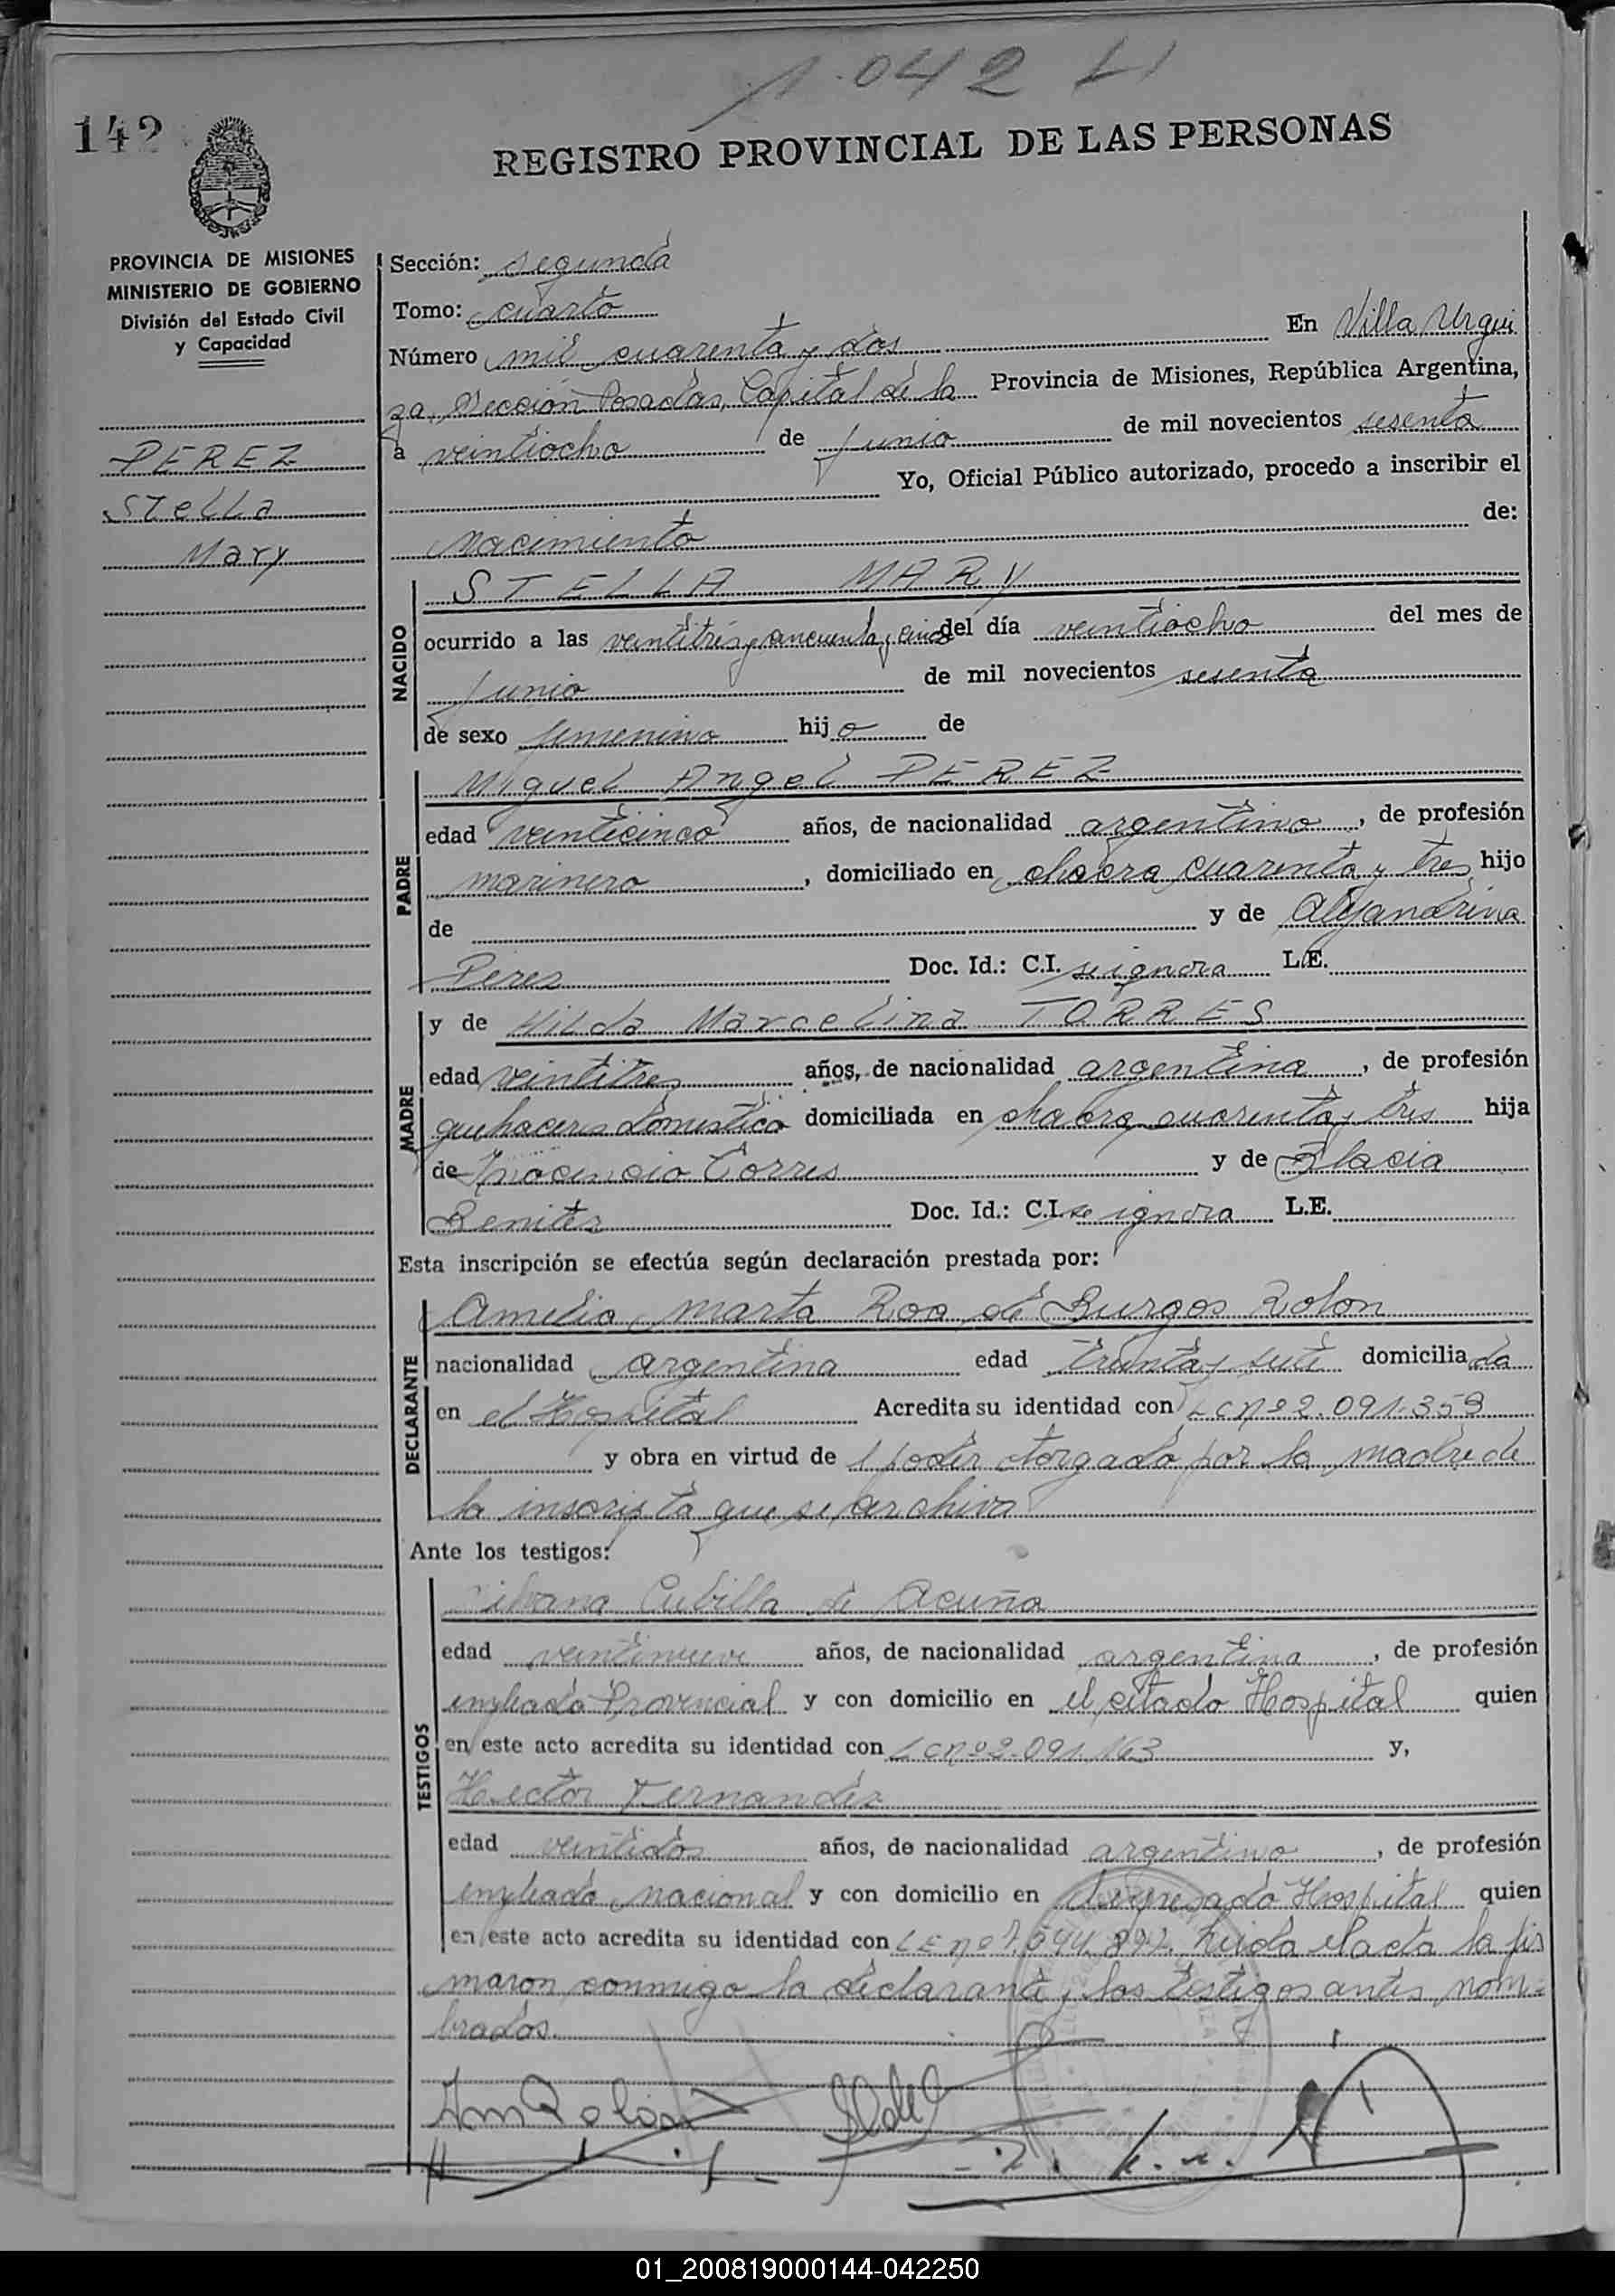 1.042
142
REGISTRO PROVINCIAL DE LAS PERSONAS
PROVINCIA DE MISIONES
MINISTERIO DE GOBIERNO
División del Estado Civil
y Capacidad
PEREZ
Stella
Mary
Sección: segunda
Tomo: cuarto
Número mil cuarenta y dos En Villa Urqui
za, Sección Posadas, Capital de la Provincia de Misiones, República Argentina,
a veintiocho de junio de mil novecientos sesenta
Yo, Oficial Público autorizado, procedo a inscribir el
Nacimiento de:
NACIDO
STELLA MARY
ocurrido a las veintitrés y cincuenta y cinco del día veintiocho del mes de
junio de mil novecientos sesenta
de sexo femenino hijo de
PADRE
Miguel Angel PEREZ
edad veinticinco años, de nacionalidad argentino, de profesión
marinero, domiciliado en chacra cuarenta y tres hijo
de y de Alejandrina
Perez Doc. Id.: C.I. se ignora L.E.
MADRE
y de Hilda Marcelina TORRES
edad veintitres años, de nacionalidad argentina, de profesión
quehaceres domestico domiciliada en chacra cuarenta y tres hija
de Inocencio Torres y de Blasia
Benitez Doc. Id.: C.I. se ignora L.E.
Esta inscripción se efectúa según declaración prestada por:
DECLARANTE
Amelia Marta Roa de Burgos Rolon
nacionalidad argentina edad treinta y siete domiciliada
en el Hospital Acredita su identidad con LC nº 2.091.359
y obra en virtud de poder otorgado por la madre de
la inscripta que se archiva
Ante los testigos:
TESTIGOS
Silvana Cubilla de Acuña
edad veintinueve años, de nacionalidad argentina, de profesión
empleada Provincial y con domicilio en el citado Hospital quien
en este acto acredita su identidad con LC nº 2.091.163 y,
Hector Fernandez
edad veintidos años, de nacionalidad argentino, de profesión
empleado nacional y con domicilio en el expresado Hospital quien
en este acto acredita su identidad con LE nº leida el acta la fir
maron conmigo la declarante y los testigos antes nom=
brados.
01_200819000144-042250